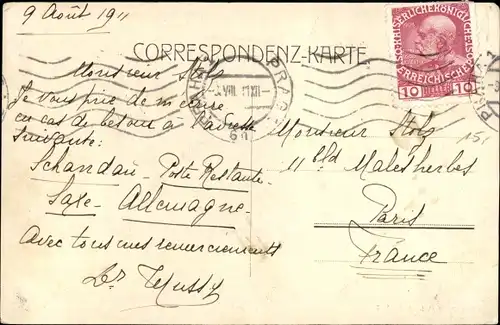 9 Août 1911
CORRESPONDENZ-KARTE
KAISERLICHEKÖNIGLICHE
ÖSTERREICHISCHE
10 HELLER 10
PRAG
Monsieur Stolz
Je vous prie de m'écrire
en cas de besoin à l'adresse
suivante:
Schandau - Poste Restante
Saxe - Allemagne
Avec tous mes remerciements
Dr
Monsieur Stolz
11 bld Malesherbes
Paris
France
15,